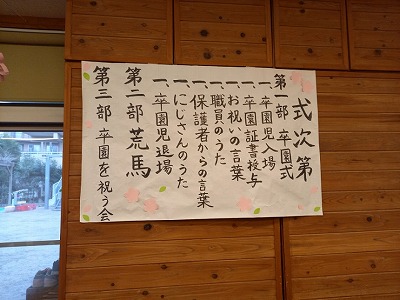 式次第
第一部 卒園式
一、卒園児入場
一、卒園証書授与
一、お祝いの言葉
一、職員のうた
一、保護者からの言葉
一、にじさんのうた
一、卒園児退場
第二部 荒馬
第三部 卒園を祝う会